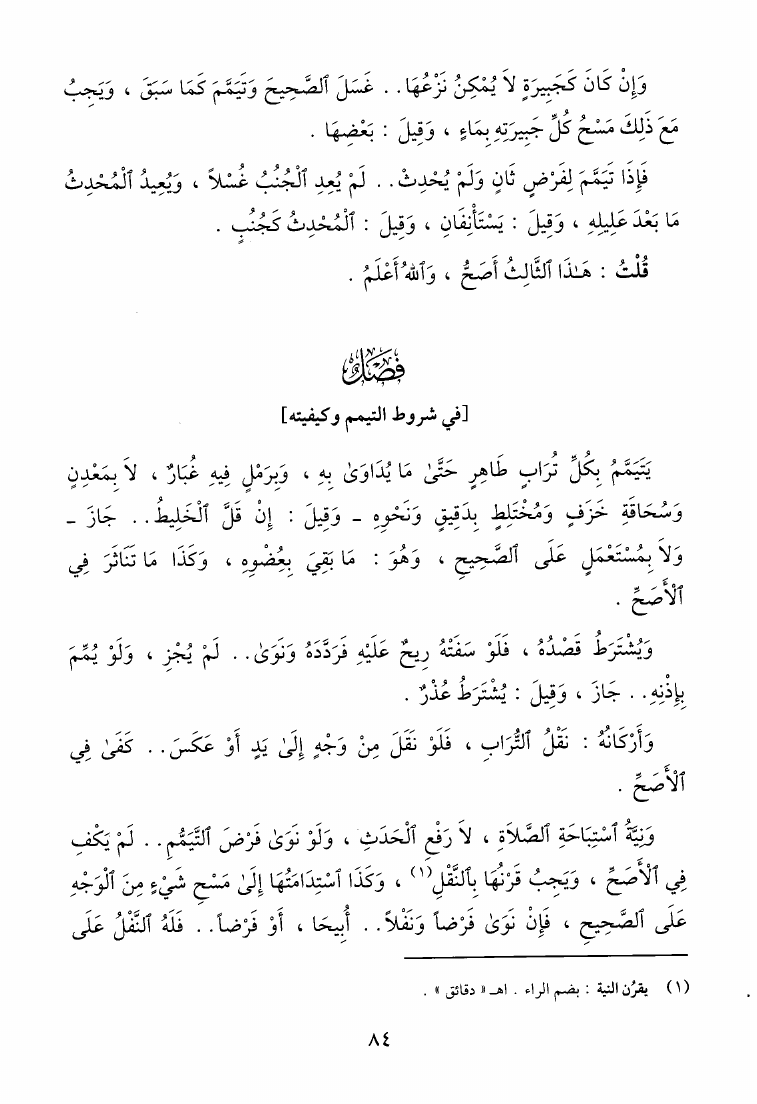 وَإِنْ كَانَ كَجَبِيرَةٍ لاَ يُمْكِنُ نَزْعُهَا . . غَسَلَ ٱلصَّحِيحَ وَتَيَمَّمَ كَمَا سَبَقَ ، وَيَجِبُ
مَعَ ذَلِكَ مَسْحُ كُلِّ جَبِيرَتِهِ بِمَاءٍ ، وَقِيلَ : بَعْضِهَا .
فَإِذَا تَيَمَّمَ لِفَرْضٍ ثَانٍ وَلَمْ يُحْدِثْ . . لَمْ يُعِدِ ٱلْجُنُبُ غُسْلاً ، وَيُعِيدُ ٱلْمُحْدِثُ
مَا بَعْدَ عَلِيلِهِ ، وَقِيلَ : يَسْتَأْنِفَانِ ، وَقِيلَ : ٱلْمُحْدِثُ كَجُنُبٍ .
قُلْتُ : هَـٰذَا ٱلثَّالِثُ أَصَحُّ ، وَٱللهُ أَعْلَمُ .
فَصْلٌ
[في شروط التيمم وكيفيته]
يَتَيَمَّمُ بِكُلِّ تُرَابٍ طَاهِرٍ حَتَّىٰ مَا يُدَاوَىٰ بِهِ ، وَبِرَمْلٍ فِيهِ غُبَارٌ ، لاَ بِمَعْدِنٍ
وَسُحَاقَةِ خَزَفٍ وَمُخْتَلِطٍ بِدَقِيقٍ وَنَحْوِهِ - وَقِيلَ : إِنْ قَلَّ ٱلْخَلِيطُ . . جَازَ -
وَلاَ بِمُسْتَعْمَلٍ عَلَى ٱلصَّحِيحِ ، وَهُوَ : مَا بَقِيَ بِعُضْوِهِ ، وَكَذَا مَا تَنَاثَرَ فِي
ٱلأَصَحِّ .
وَيُشْتَرَطُ قَصْدُهُ ، فَلَوْ سَفَتْهُ رِيحٌ عَلَيْهِ فَرَدَّدَهُ وَنَوَىٰ . . لَمْ يُجْزِ ، وَلَوْ يُمِّمَ
بِإِذْنِهِ . . جَازَ ، وَقِيلَ : يُشْتَرَطُ عُذْرٌ .
وَأَرْكَانُهُ : نَقْلُ ٱلتُّرَابِ ، فَلَوْ نَقَلَ مِنْ وَجْهٍ إِلَىٰ يَدٍ أَوْ عَكَسَ . . كَفَىٰ فِي
ٱلأَصَحِّ .
وَنِيَّةُ ٱسْتِبَاحَةِ ٱلصَّلاَةِ ، لاَ رَفْعِ ٱلْحَدَثِ ، وَلَوْ نَوَىٰ فَرْضَ ٱلتَّيَمُّمِ . . لَمْ يَكْفِ
فِي ٱلأَصَحِّ ، وَيَجِبُ قَرْنُهَا بِٱلنَّقْلِ(١) ، وَكَذَا ٱسْتِدَامَتُهَا إِلَىٰ مَسْحِ شَيْءٍ مِنَ ٱلْوَجْهِ
عَلَى ٱلصَّحِيحِ ، فَإِنْ نَوَىٰ فَرْضاً وَنَفْلاً . . أُبِيحَا ، أَوْ فَرْضاً . . فَلَهُ ٱلنَّفْلُ عَلَى
(١) يقرُن النية : بضم الراء . اهـ « دقائق » .
٨٤